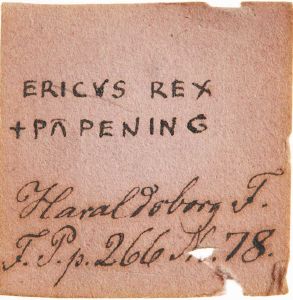 ERICVS REX
+PΛPENING
Haraldsborg F.
F. P. p. 266 N. 78.